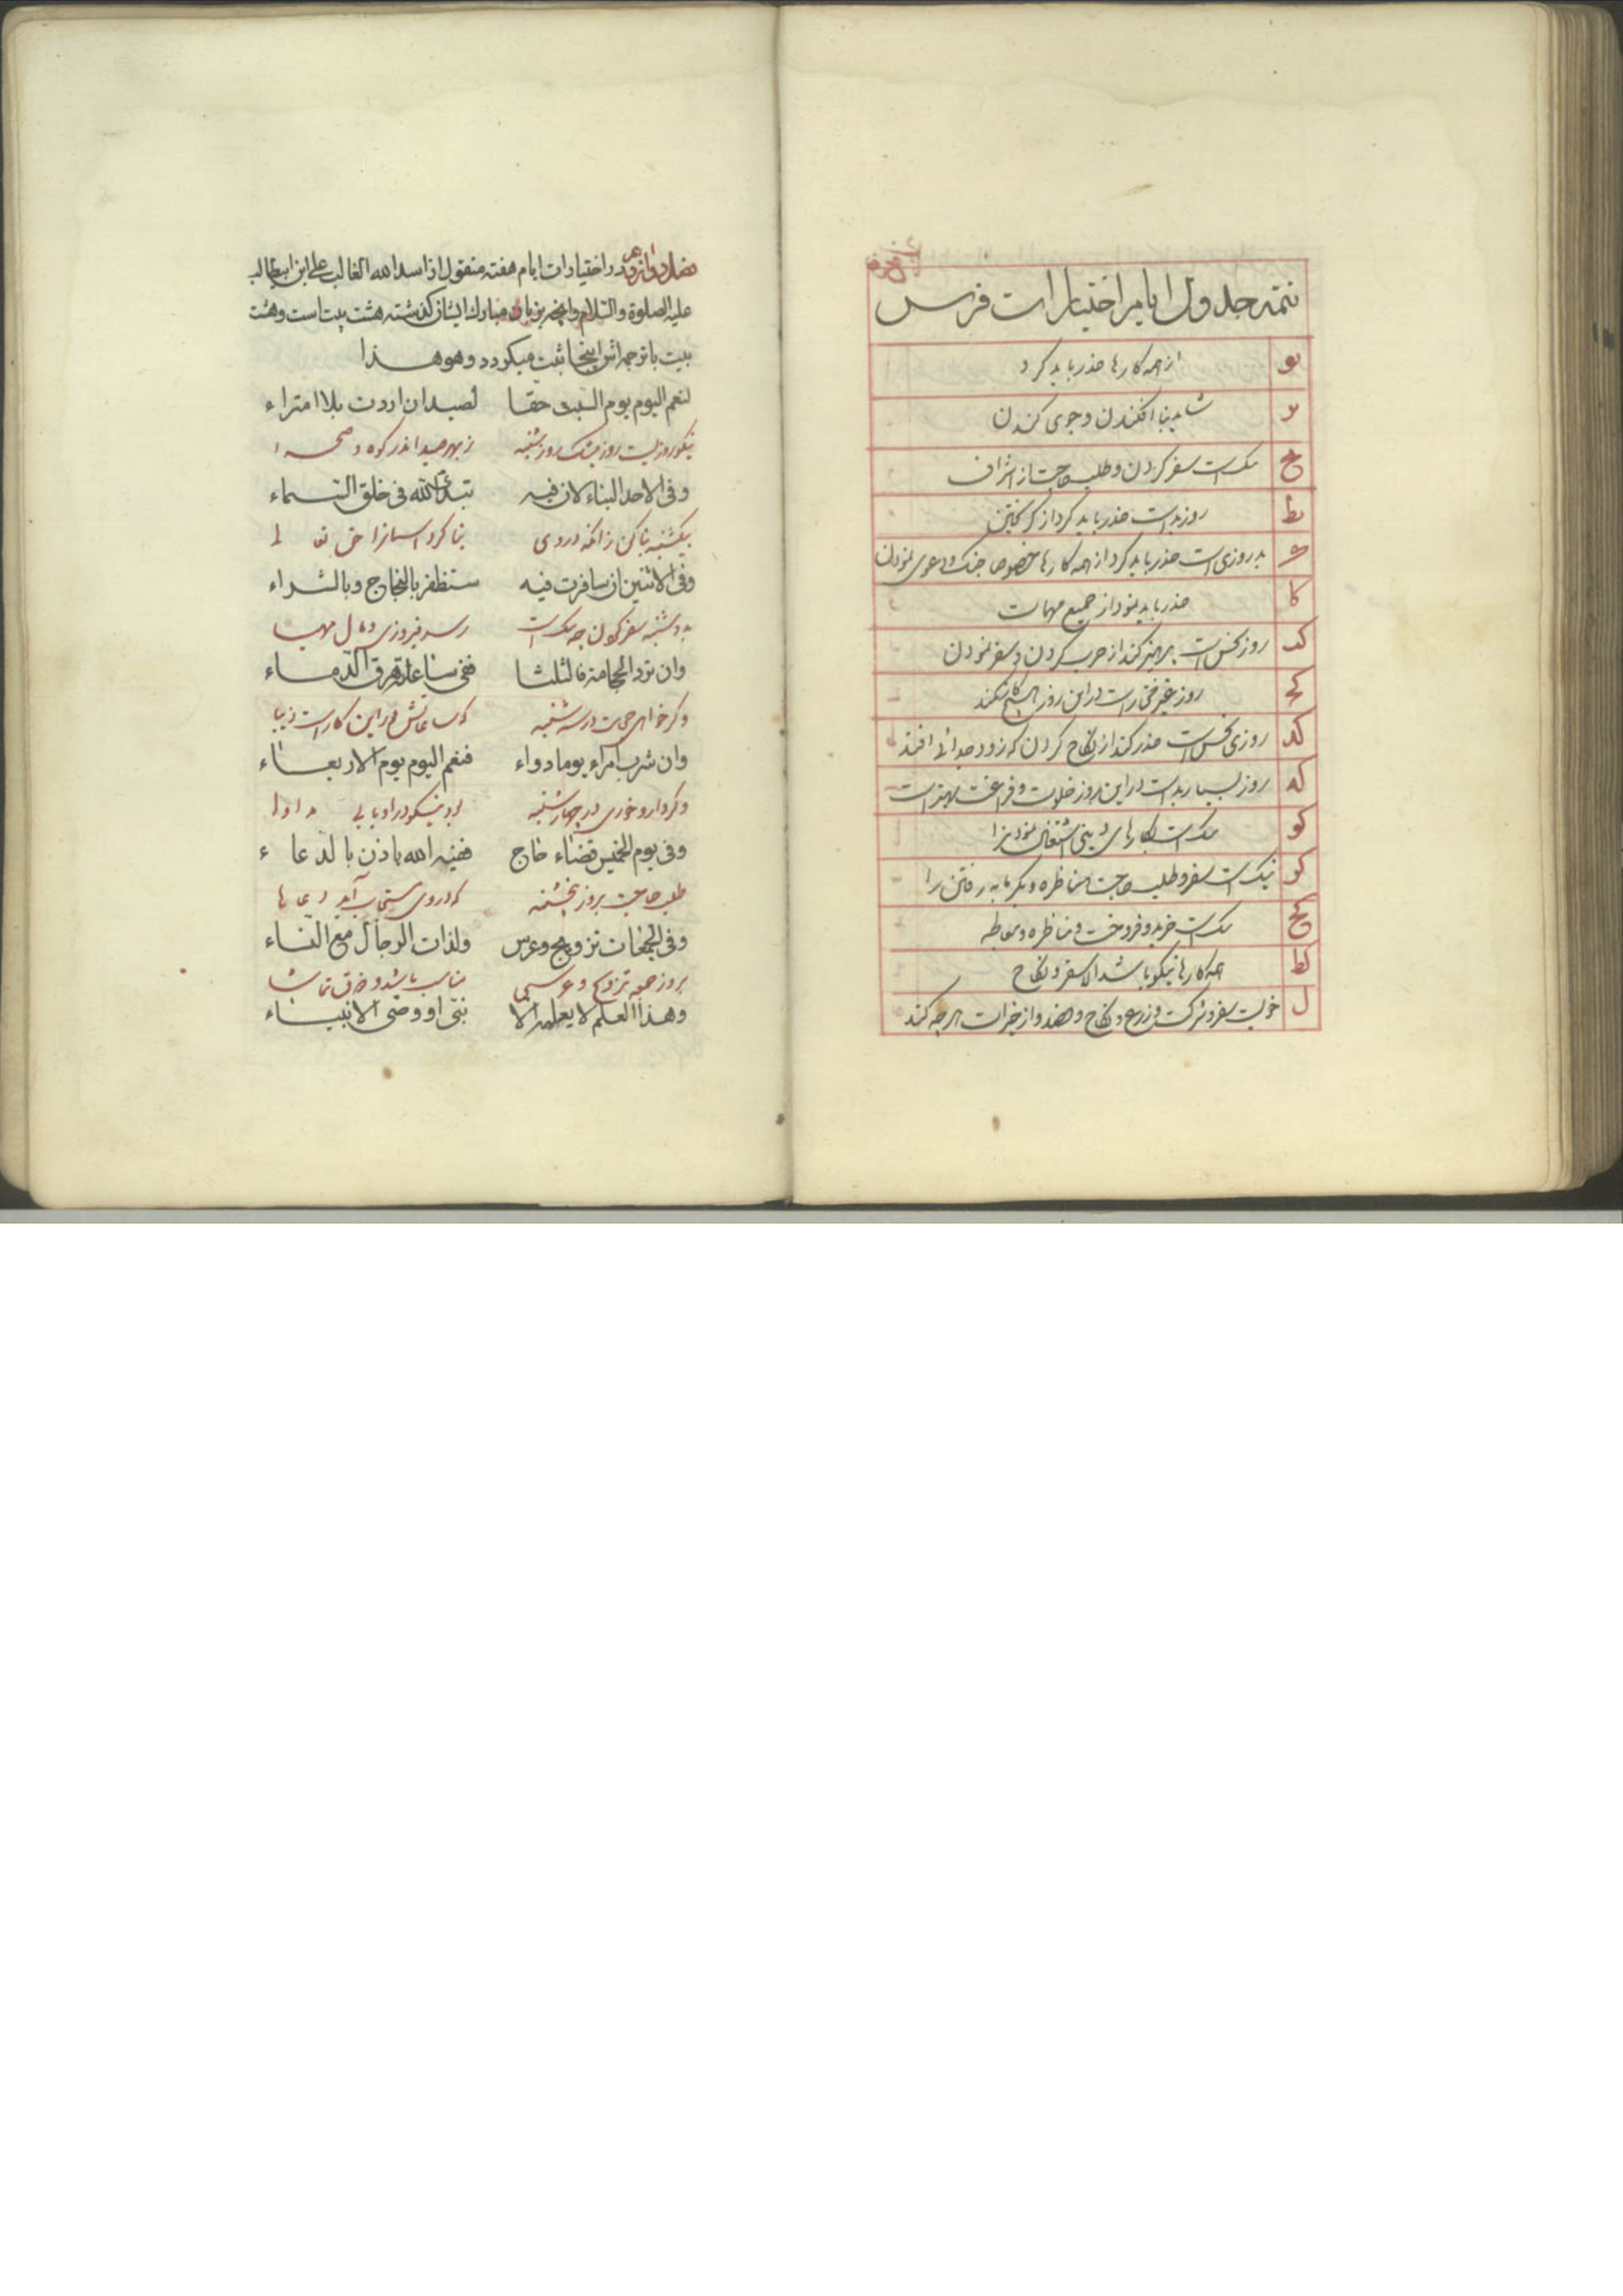 تتمه جدول ایام اختیارات فرس
یو از همه کارها حذر باید کرد
یز شاید بنا افکندن و جوی کندن
یح نیکست سفر کردن و طلب حاجت از اشراف
یط روز بدست حذر باید کرد از گریختن
ک بد روزی است حذر باید کرد از همه کارها خصوصا جنک و دعوی نمودن
کا حذر باید نمود از جمیع مهمات
کب روز نحس است پرهیز کند از حرب کردن و سفر نمودن
کج روز غیر مختار است در این روز هیچ کار نکند
کد روزی نحس است حذر کند از نکاح کردن که زود جدائی افتد
که روز بسیار بد است در این روز خلوت و فراغت بهتر است
کو نیکست بکارهای دینی اشتغال نمودن
کز نیک است سفر و طلب حاجت و مناظره و بکرمابه رفتن را
کح نیکست خرید و فروخت و مناظره و معامله
کط همه کارها نیکو باشد الا سفر و نکاح
ل خوبست سفر و شرکت و زرع و نکاح و فصد و از خیرات هر چه کند
فصل دوازدهم در اختیارات ایام هفته منقول از اسد الله الغالب علی ابن ابیطالب
علیه الصلوة والسلام و آنچه بزبان مبارک ایشان کذشته هشت بیت است و هشت
بیت با ترجمه اش اینجا ثبت میکردد وهو هذا
لنعم الیوم یوم السبت حقا لصید ان اردت بلا امتراء
نیکو روزیست روز نیک روز شنبه ز بهر صید اندر کوه و صحرا
وفی الاحد البناء لان فیه تبدئ الله فی خلق السماء
بیکشنبه بنا کن زانکه در وی بنا کرد اسمانرا حق تعالی
وفی الاثنین ان سافرت فیه ستظفر بالنجاح وبالثراء
بدوشنبه سفر کردن چه نیک است رسد فیروزی و مال مهیا
وان ترد الحجامة فالثلثا ففی ساعاته هرق الدماء
وکر خواهی حجامت در سه شنبه که ساعاتش در این کار است زیبا
وان شرب امرء یوما دواء فنعم الیوم یوم الاربعاء
وکر دارو خوری در چهار شنبه بود نیکو در او یابی مداوا
وفی یوم الخمیس قضاء حاج ففیه الله یاذن بالدعاء
طلب حاجت بروز پنجشنبه که در وی مستجاب آید دعاها
وفی الجمعات تزویج وعرس ولذات الرجال مع النساء
بروز جمعه تزویج و عروسی مناسب باشد و ذوق تماشا
وهذا العلم لا یعلمه الا نبی او وصی الانبیاء